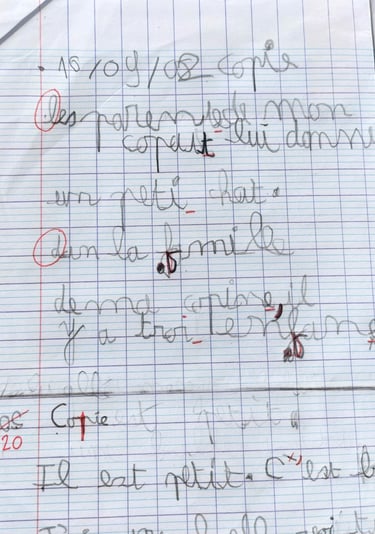 • 16/09/08 Copie
les parens de mon
copait lui donne
un peti chat.
dan la famille
de ma copine, il
y a troi enfans
Copie
20
Il est petit. C'est l